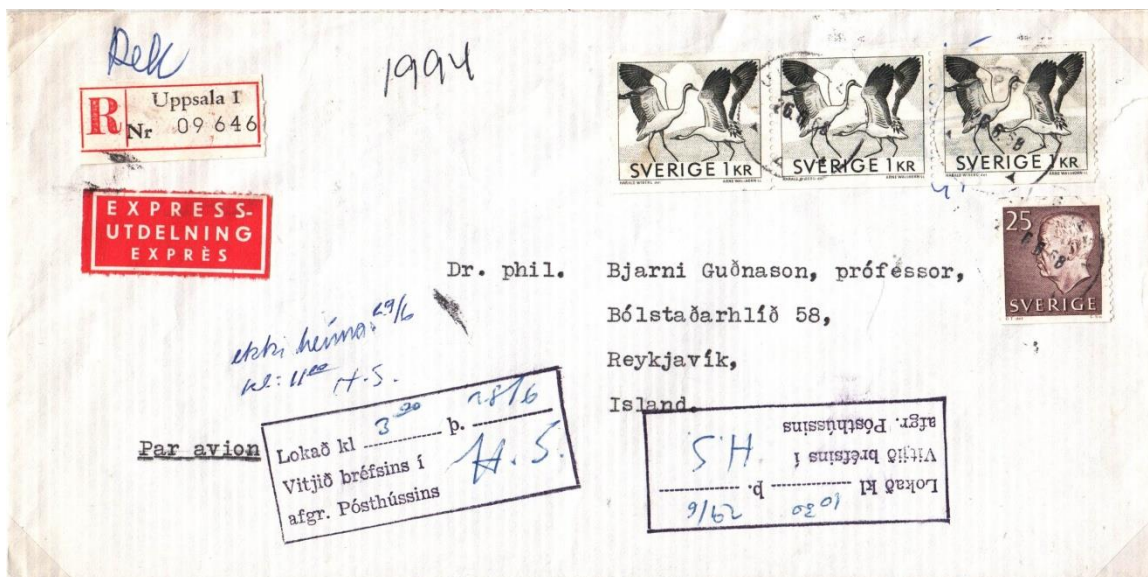 Rek
1994
R Uppsala 1
Nr 09 646
EXPRESS-
UTDELNING
EXPRÈS
SVERIGE 1 KR
SVERIGE 1 KR
SVERIGE 1 KR
25
SVERIGE
Dr. phil. Bjarni Guðnason, prófessor,
Bólstaðarhlíð 58,
Reykjavík,
Island.
ekki heima 29/6
kl: 11⁰⁰
H.S.
Par avion
Lokað kl 3 30 þ. 28/6
Vitjið bréfsins í
afgr. Pósthússins
H.S.
Lokað kl 1030 þ. 29/6
Vitjið bréfsins í
afgr. Pósthússins
H.S